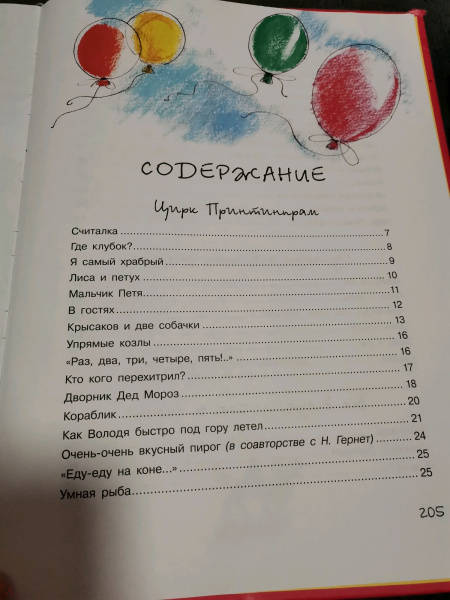 СОДЕРЖАНИЕ
Цирк Принтинпрам
Считалка 7
Где клубок? 8
Я самый храбрый 9
Лиса и петух 10
Мальчик Петя 11
В гостях 12
Крысаков и две собачки 13
Упрямые козлы 16
«Раз, два, три, четыре, пять!..» 16
Кто кого перехитрил? 17
Дворник Дед Мороз 18
Кораблик 20
Как Володя быстро под гору летел 21
Очень-очень вкусный пирог (в соавторстве с Н. Гернет) 24
«Еду-еду на коне...» 25
Умная рыба 25
205